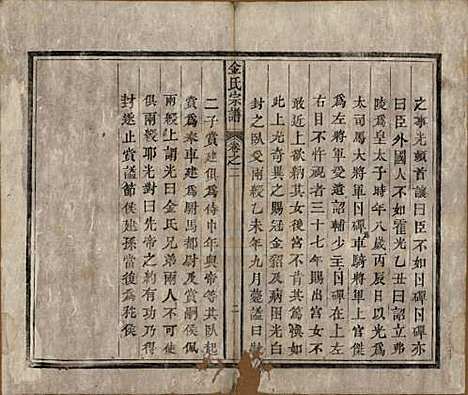 之事光頓首讓曰臣不如日磾日磾亦
曰臣外國人不如霍光乙丑曰詔立弗
陵爲皇太子時年八歲丙辰日以光爲
太司馬大將軍日磾車騎將軍上官傑
爲左將軍受遺詔輔少主日磾在上左
右目不忤視者三十七年賜出宮女不
敢近上欲納其女後宮不肯其篤慎爲
此上尤奇異之賜冠金貂及病困光白
封之臥受兩綬乙未年九月薨謚曰敬
金氏宗譜
卷之二
二
二子賞建俱爲侍中年與帝等共臥起
賞爲奉車建爲尉馬都尉及賞嗣侯佩
兩綬上謂光曰金氏兄弟兩人不可使
俱兩綬耶光對曰先帝之約有功乃得
封遂止賞謚節侯建孫當後爲秅侯